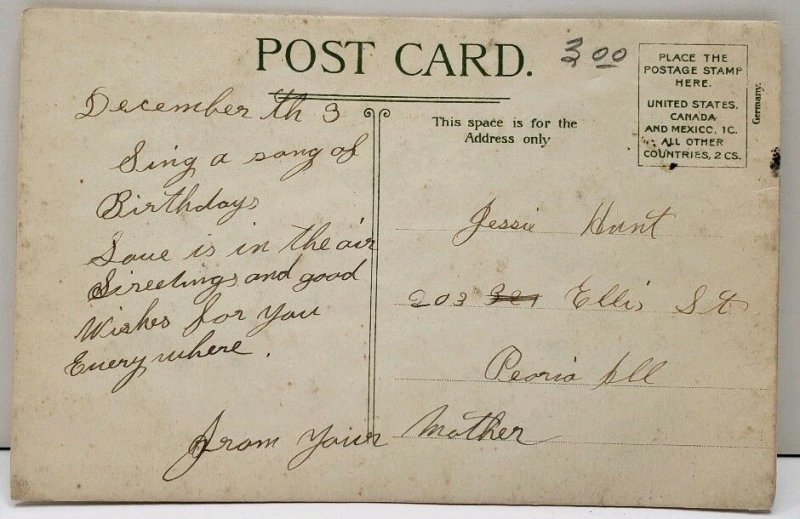 POST CARD.
3.00
PLACE THE
POSTAGE STAMP
HERE.
UNITED STATES,
CANADA
AND MEXICO, 1C.
ALL OTHER
COUNTRIES, 2 CS.
Germany.
This space is for the
Address only
December th 3
Sing a song of
Birthdays
Love is in the air
Greetings and good
Wishes for you
Every where.
From your Mother
Jessie Hunt
203 321 Ellis St
Peoria Ill